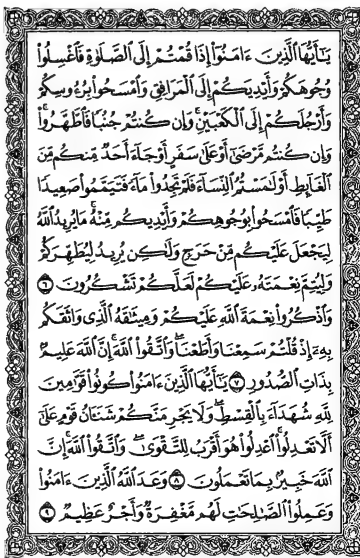 يَٰٓأَيُّهَا ٱلَّذِينَ ءَامَنُوٓا۟ إِذَا قُمْتُمْ إِلَى ٱلصَّلَوٰةِ فَٱغْسِلُوا۟
وُجُوهَكُمْ وَأَيْدِيَكُمْ إِلَى ٱلْمَرَافِقِ وَٱمْسَحُوا۟ بِرُءُوسِكُمْ
وَأَرْجُلَكُمْ إِلَى ٱلْكَعْبَيْنِ ۚ وَإِن كُنتُمْ جُنُبًا فَٱطَّهَّرُوا۟ ۚ
وَإِن كُنتُم مَّرْضَىٰٓ أَوْ عَلَىٰ سَفَرٍ أَوْ جَآءَ أَحَدٌ مِّنكُم مِّنَ
ٱلْغَآئِطِ أَوْ لَٰمَسْتُمُ ٱلنِّسَآءَ فَلَمْ تَجِدُوا۟ مَآءً فَتَيَمَّمُوا۟ صَعِيدًا
طَيِّبًا فَٱمْسَحُوا۟ بِوُجُوهِكُمْ وَأَيْدِيكُم مِّنْهُ ۚ مَا يُرِيدُ ٱللَّهُ
لِيَجْعَلَ عَلَيْكُم مِّنْ حَرَجٍ وَلَٰكِن يُرِيدُ لِيُطَهِّرَكُمْ
وَلِيُتِمَّ نِعْمَتَهُۥ عَلَيْكُمْ لَعَلَّكُمْ تَشْكُرُونَ ٦
وَٱذْكُرُوا۟ نِعْمَةَ ٱللَّهِ عَلَيْكُمْ وَمِيثَٰقَهُ ٱلَّذِى وَاثَقَكُم
بِهِۦٓ إِذْ قُلْتُمْ سَمِعْنَا وَأَطَعْنَا ۖ وَٱتَّقُوا۟ ٱللَّهَ ۚ إِنَّ ٱللَّهَ عَلِيمٌۢ
بِذَاتِ ٱلصُّدُورِ ٧ يَٰٓأَيُّهَا ٱلَّذِينَ ءَامَنُوا۟ كُونُوا۟ قَوَّٰمِينَ
لِلَّهِ شُهَدَآءَ بِٱلْقِسْطِ ۖ وَلَا يَجْرِمَنَّكُمْ شَنَـَٔانُ قَوْمٍ عَلَىٰٓ
أَلَّا تَعْدِلُوا۟ ۚ ٱعْدِلُوا۟ هُوَ أَقْرَبُ لِلتَّقْوَىٰ ۖ وَٱتَّقُوا۟ ٱللَّهَ ۚ إِنَّ
ٱللَّهَ خَبِيرٌۢ بِمَا تَعْمَلُونَ ٨ وَعَدَ ٱللَّهُ ٱلَّذِينَ ءَامَنُوا۟
وَعَمِلُوا۟ ٱلصَّٰلِحَٰتِ ۙ لَهُم مَّغْفِرَةٌ وَأَجْرٌ عَظِيمٌ ٩